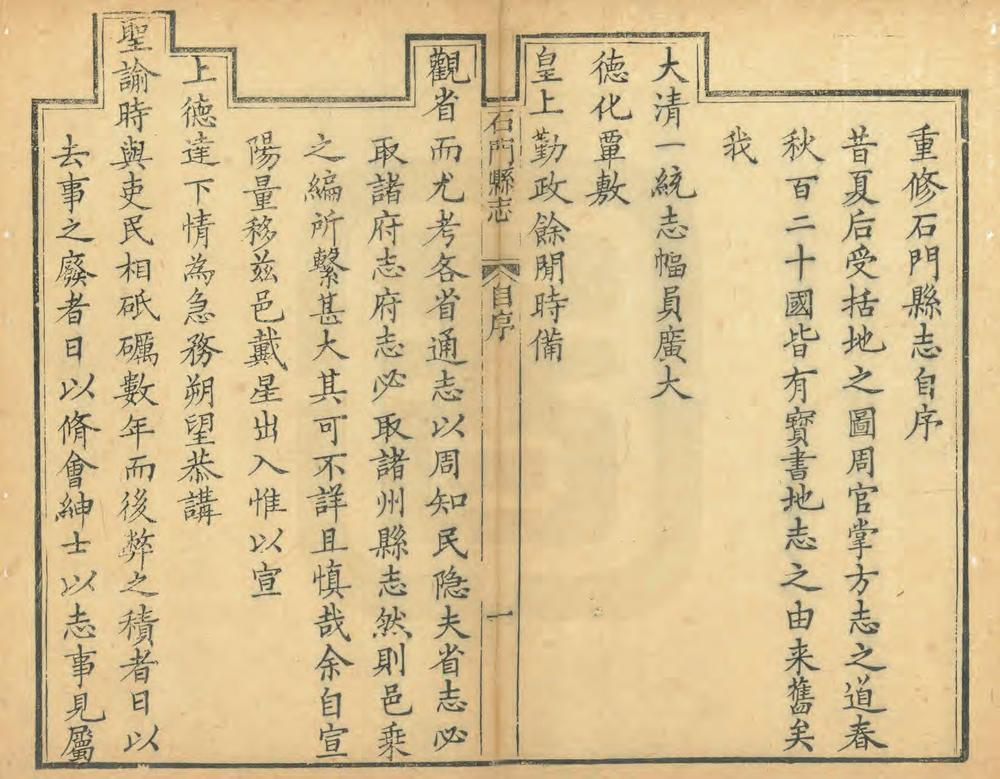 重修石門縣志自序
昔夏后受括地之圖周官掌方志之道春
秋百二十國皆有寶書地志之由来舊矣
我
大清一統志幅員廣大
德化覃敷
皇上勤政餘閒時備
石門縣志 自序 一
觀省而尤考各省通志以周知民隐夫省志必
取諸府志府志必取諸州縣志然則邑乗
之編所繫甚大其可不詳且慎哉余自宣
陽量移兹邑戴星出入惟以宣
上德達下情為急務朔望恭講
聖諭時與吏民相砥礪數年而後弊之積者日以
去事之廢者日以脩會紳士以志事見屬